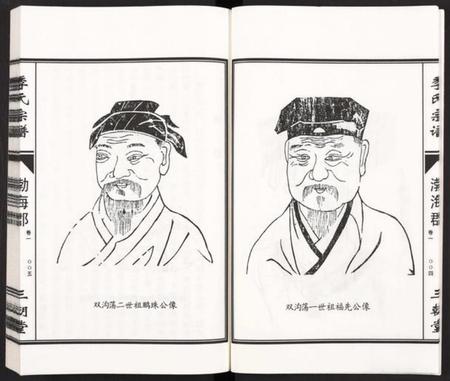 季氏宗谱
渤海郡
卷一
〇〇四
三朝堂
双沟荡一世祖福先公像
季氏宗谱
渤海郡
卷一
〇〇五
三朝堂
双沟荡二世祖鹏珠公像